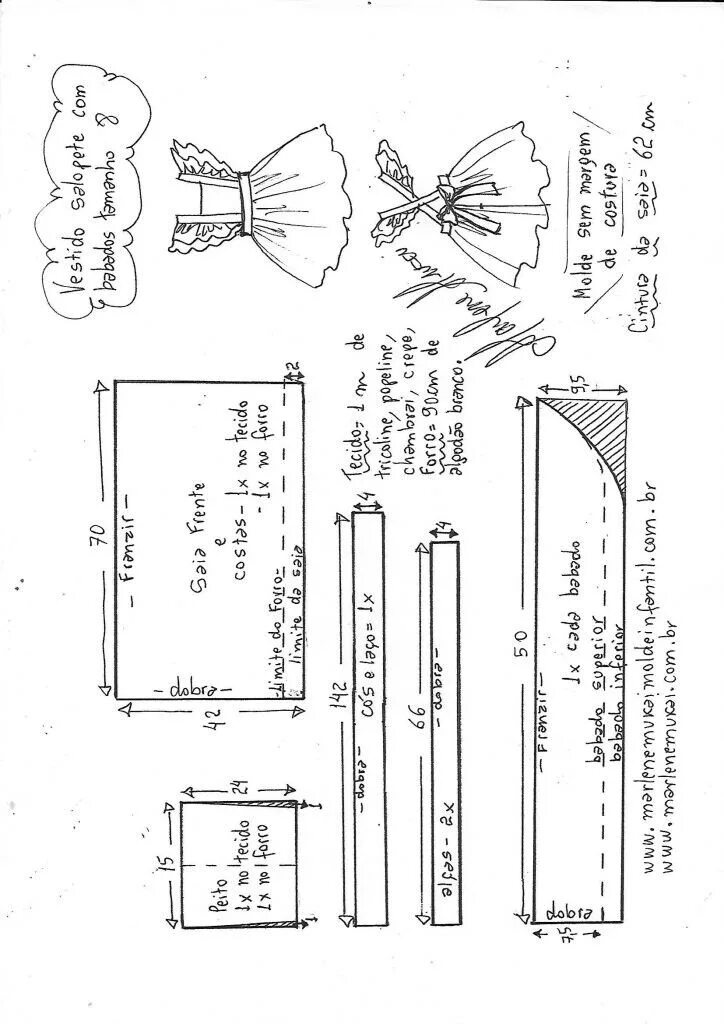 Vestido salopete com
babados tamanho 8
Molde sem margem
de costura
Cintura da saia = 62 cm
Tecido = 1 m de
tricoline, popeline,
chambrai, crepe,
Forro = 90cm de
algodão branco.
70
- Franzir -
Saia Frente
e
costas - 1x no tecido
- 1x no forro
-Limite do Forro-
limite da saia
2
- dobra -
42
15
24
Peito
1x no tecido
1x no forro
1
1
142
4
- dobra -
cós e laço = 1x
66
4
- dobra -
alças - 2x
50
9,5
- Franzir -
1x cada babado
babado superior
babado inferior
dobra
7,5
www.marlenemukaimoldeinfantil.com.br
www.marlenemukai.com.br